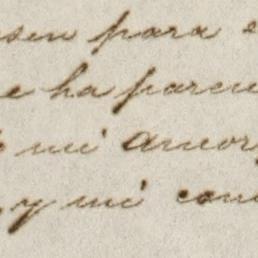 para
e ha parec
mi amor
, y mi con